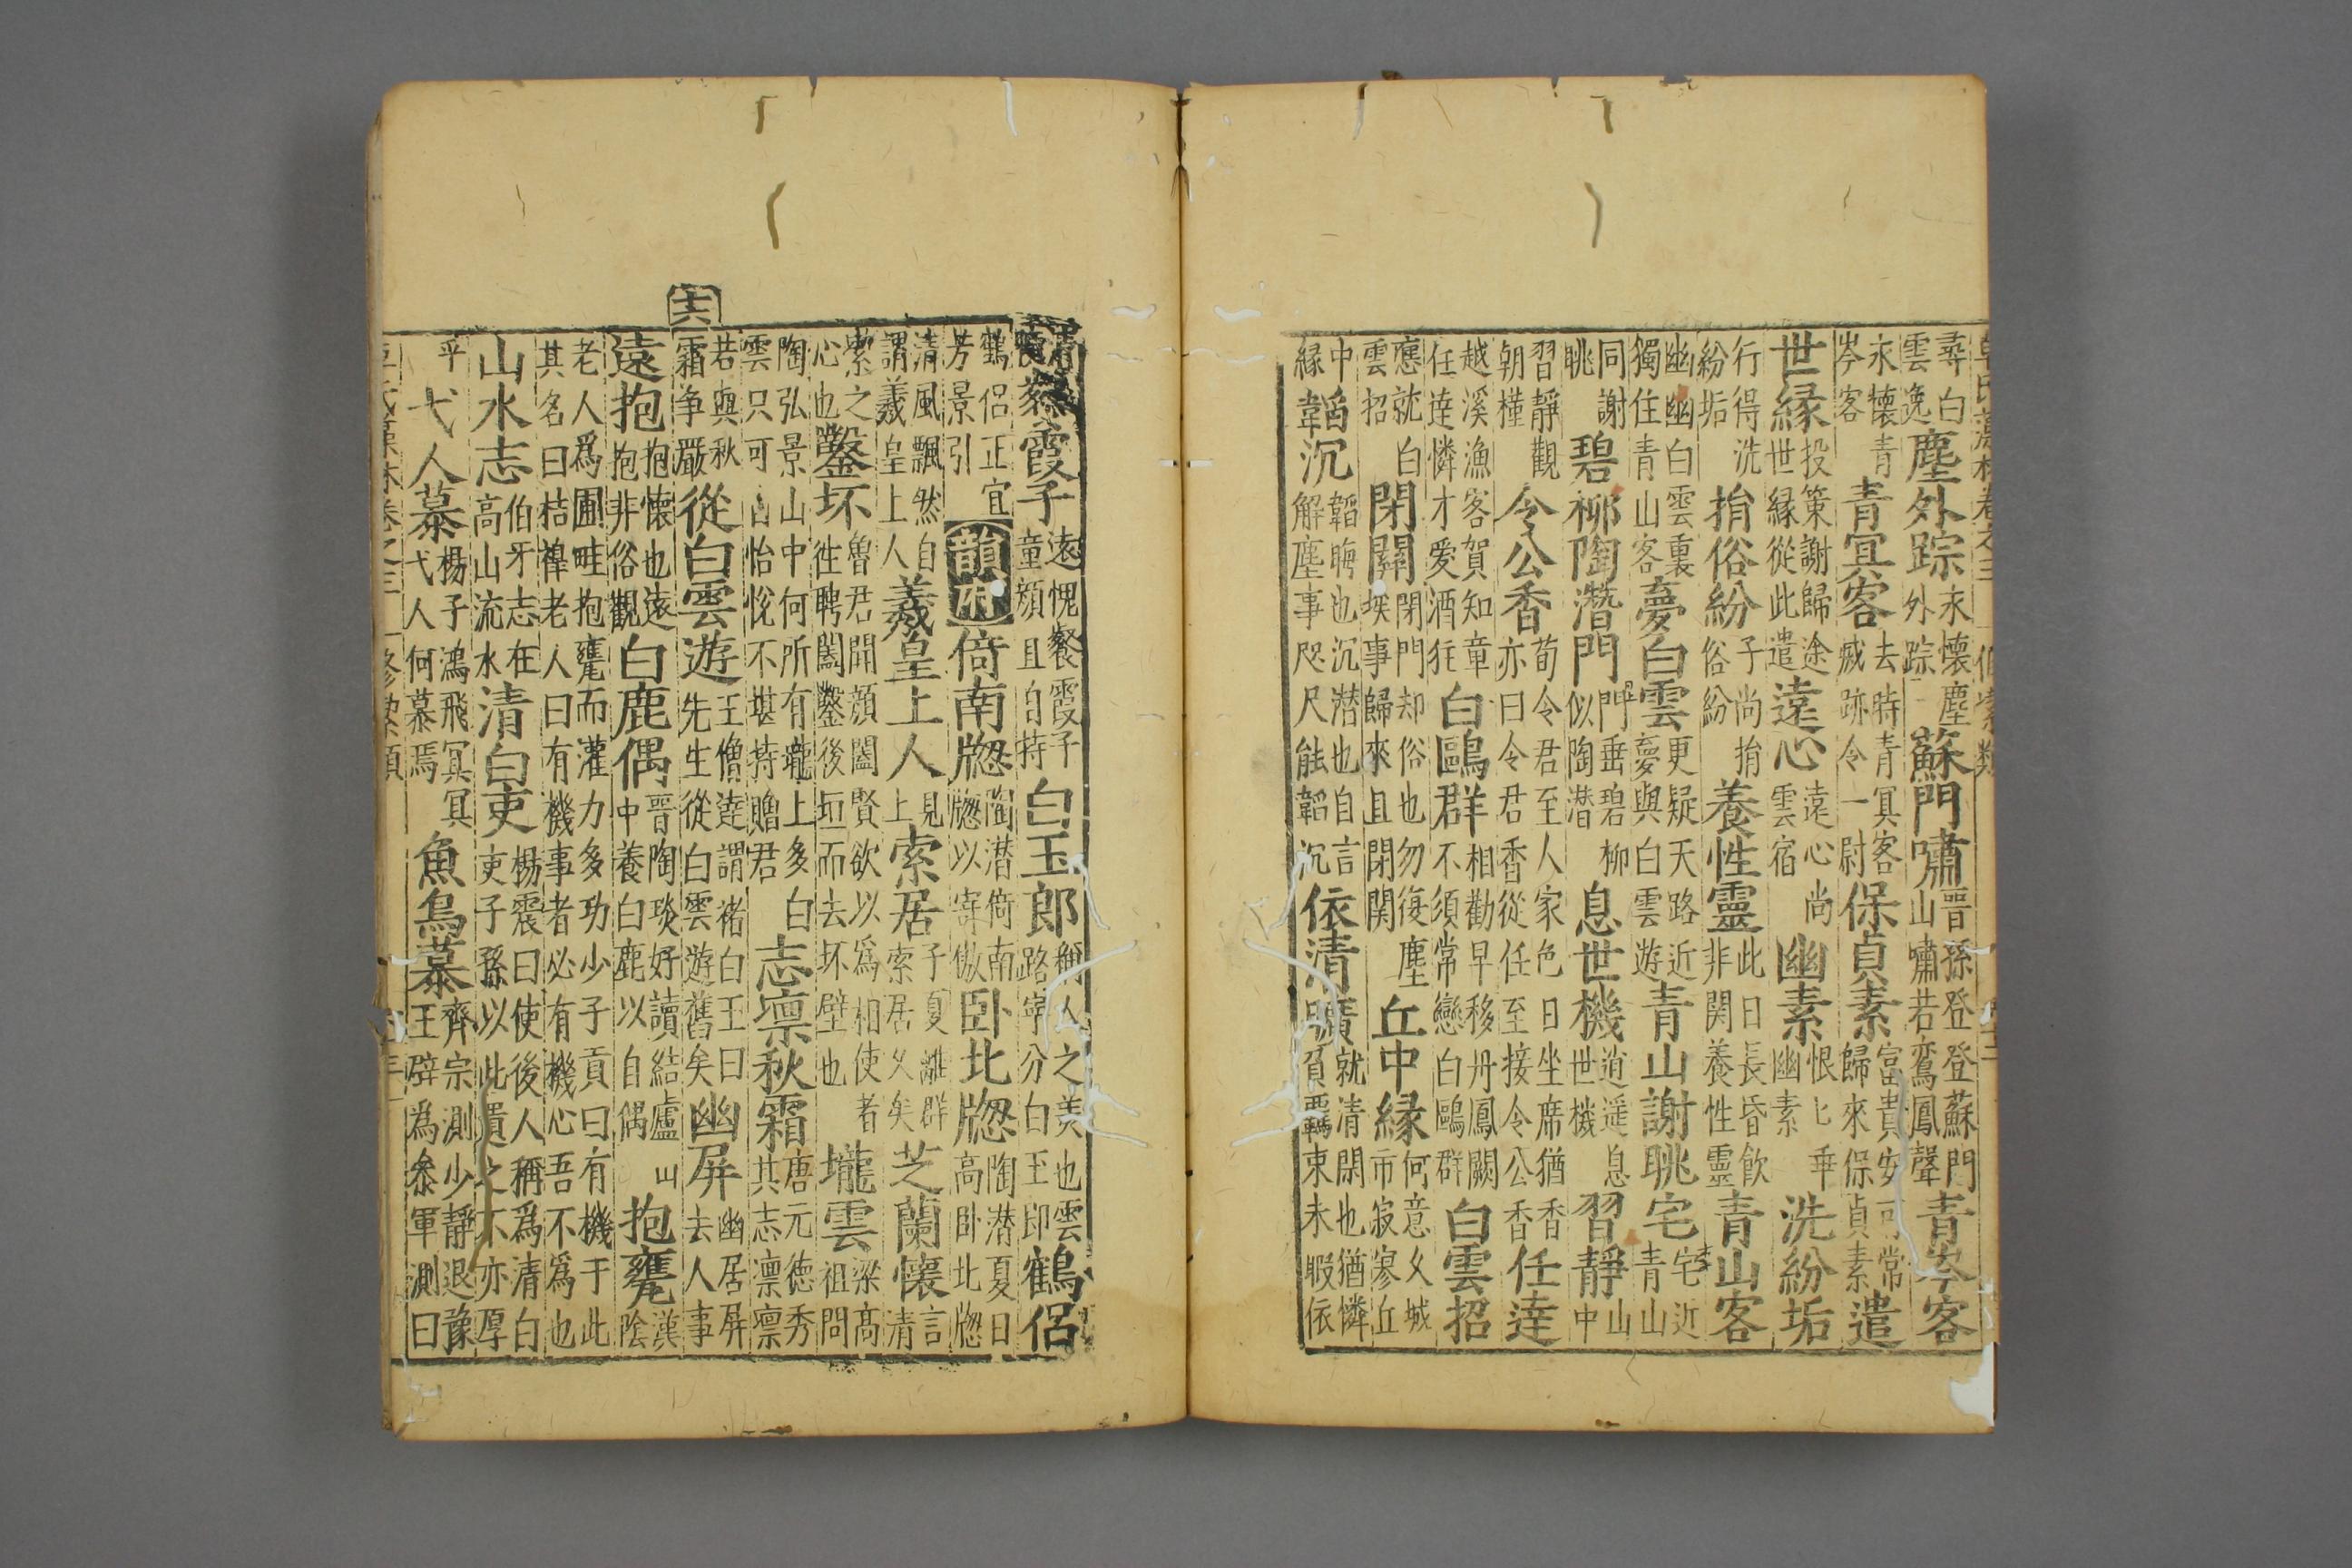 尋白雲逸塵外踪永懷塵外踪蘇門嘯晉孫登登蘇門山嘯若鸞鳳聲青岑客
永懷青岑客青冥客去時青冥客戚跡令一尉保貞素富貴安可常歸來保貞素遣
世縁投策謝歸途世縁從此遣遠心遠心尚雲宿幽素恨匕垂幽素洗紛垢
行得洗紛垢捐俗紛子尚捐俗紛養性靈此日長昏飲非関養性靈青山客
幽幽白雲裏獨住青山客夢白雲更疑天路近夢與白雲遊青山謝眺宅宅近青山
同謝眺碧柳陶潛門門垂碧柳似陶潜息世機逍遥息世機習靜山中
習靜觀朝槿令公香荀令君至人家色日坐席猶香亦曰令君香從任至接令公香任達
越溪漁客賀知章任達憐才爱酒狂白鷗群相勸早移丹鳳闕不須常戀白鷗群白雲招
應就白雲招閉關閉門却俗也勿復塵埃事歸來且閉関丘中縁何意久城市寂寥丘
中縁韜沉韜晦也沉潜也自言解塵事咫尺能韜沉依清曠就清閑也猶憐貧羈束未暇依
清曠餐霞子遠愧餐霞子童顔且自持白玉郎稱人之美也雲路寧分白玉郎鶴侶
鶴侶正宜芳景引韻府倚南牕陶潜倚南牕以寄傲卧北牕陶潜夏日高卧北牕
清風飄然自謂羲皇上人羲皇上人見上索居子夏離群索居久矣芝蘭懷言清
素之心也鑿坏魯君聞顔闔賢欲以爲相使者徃聘闔鑿後垣而去坏壁也壠雲梁高祖問
陶弘景山中何所有壠上多白雲只可自怡悦不堪持贈君志凛秋霜唐元德秀其志凛凛
六
若與秋霜争嚴從白雲遊王僧達謂禇白王曰先生從白雲遊舊矣幽屏幽居屏去人事
遠抱抱懷也遠抱非俗觀白鹿偶晋陶琰好讀結廬山中養白鹿以自偶抱甕漢陰
老人爲圃畦抱甕而灌力多功少子貢曰有機于此其名曰桔槹老人曰有機事者必有機心吾不為也
山水志伯牙志在高山流水清白吏楊震曰使後人稱爲清白吏子孫以此遺之不亦厚
乎弋人慕楊子鴻飛冥冥弋人何慕焉魚鳥慕齊宗測少靜退豫王辟為叅軍測曰